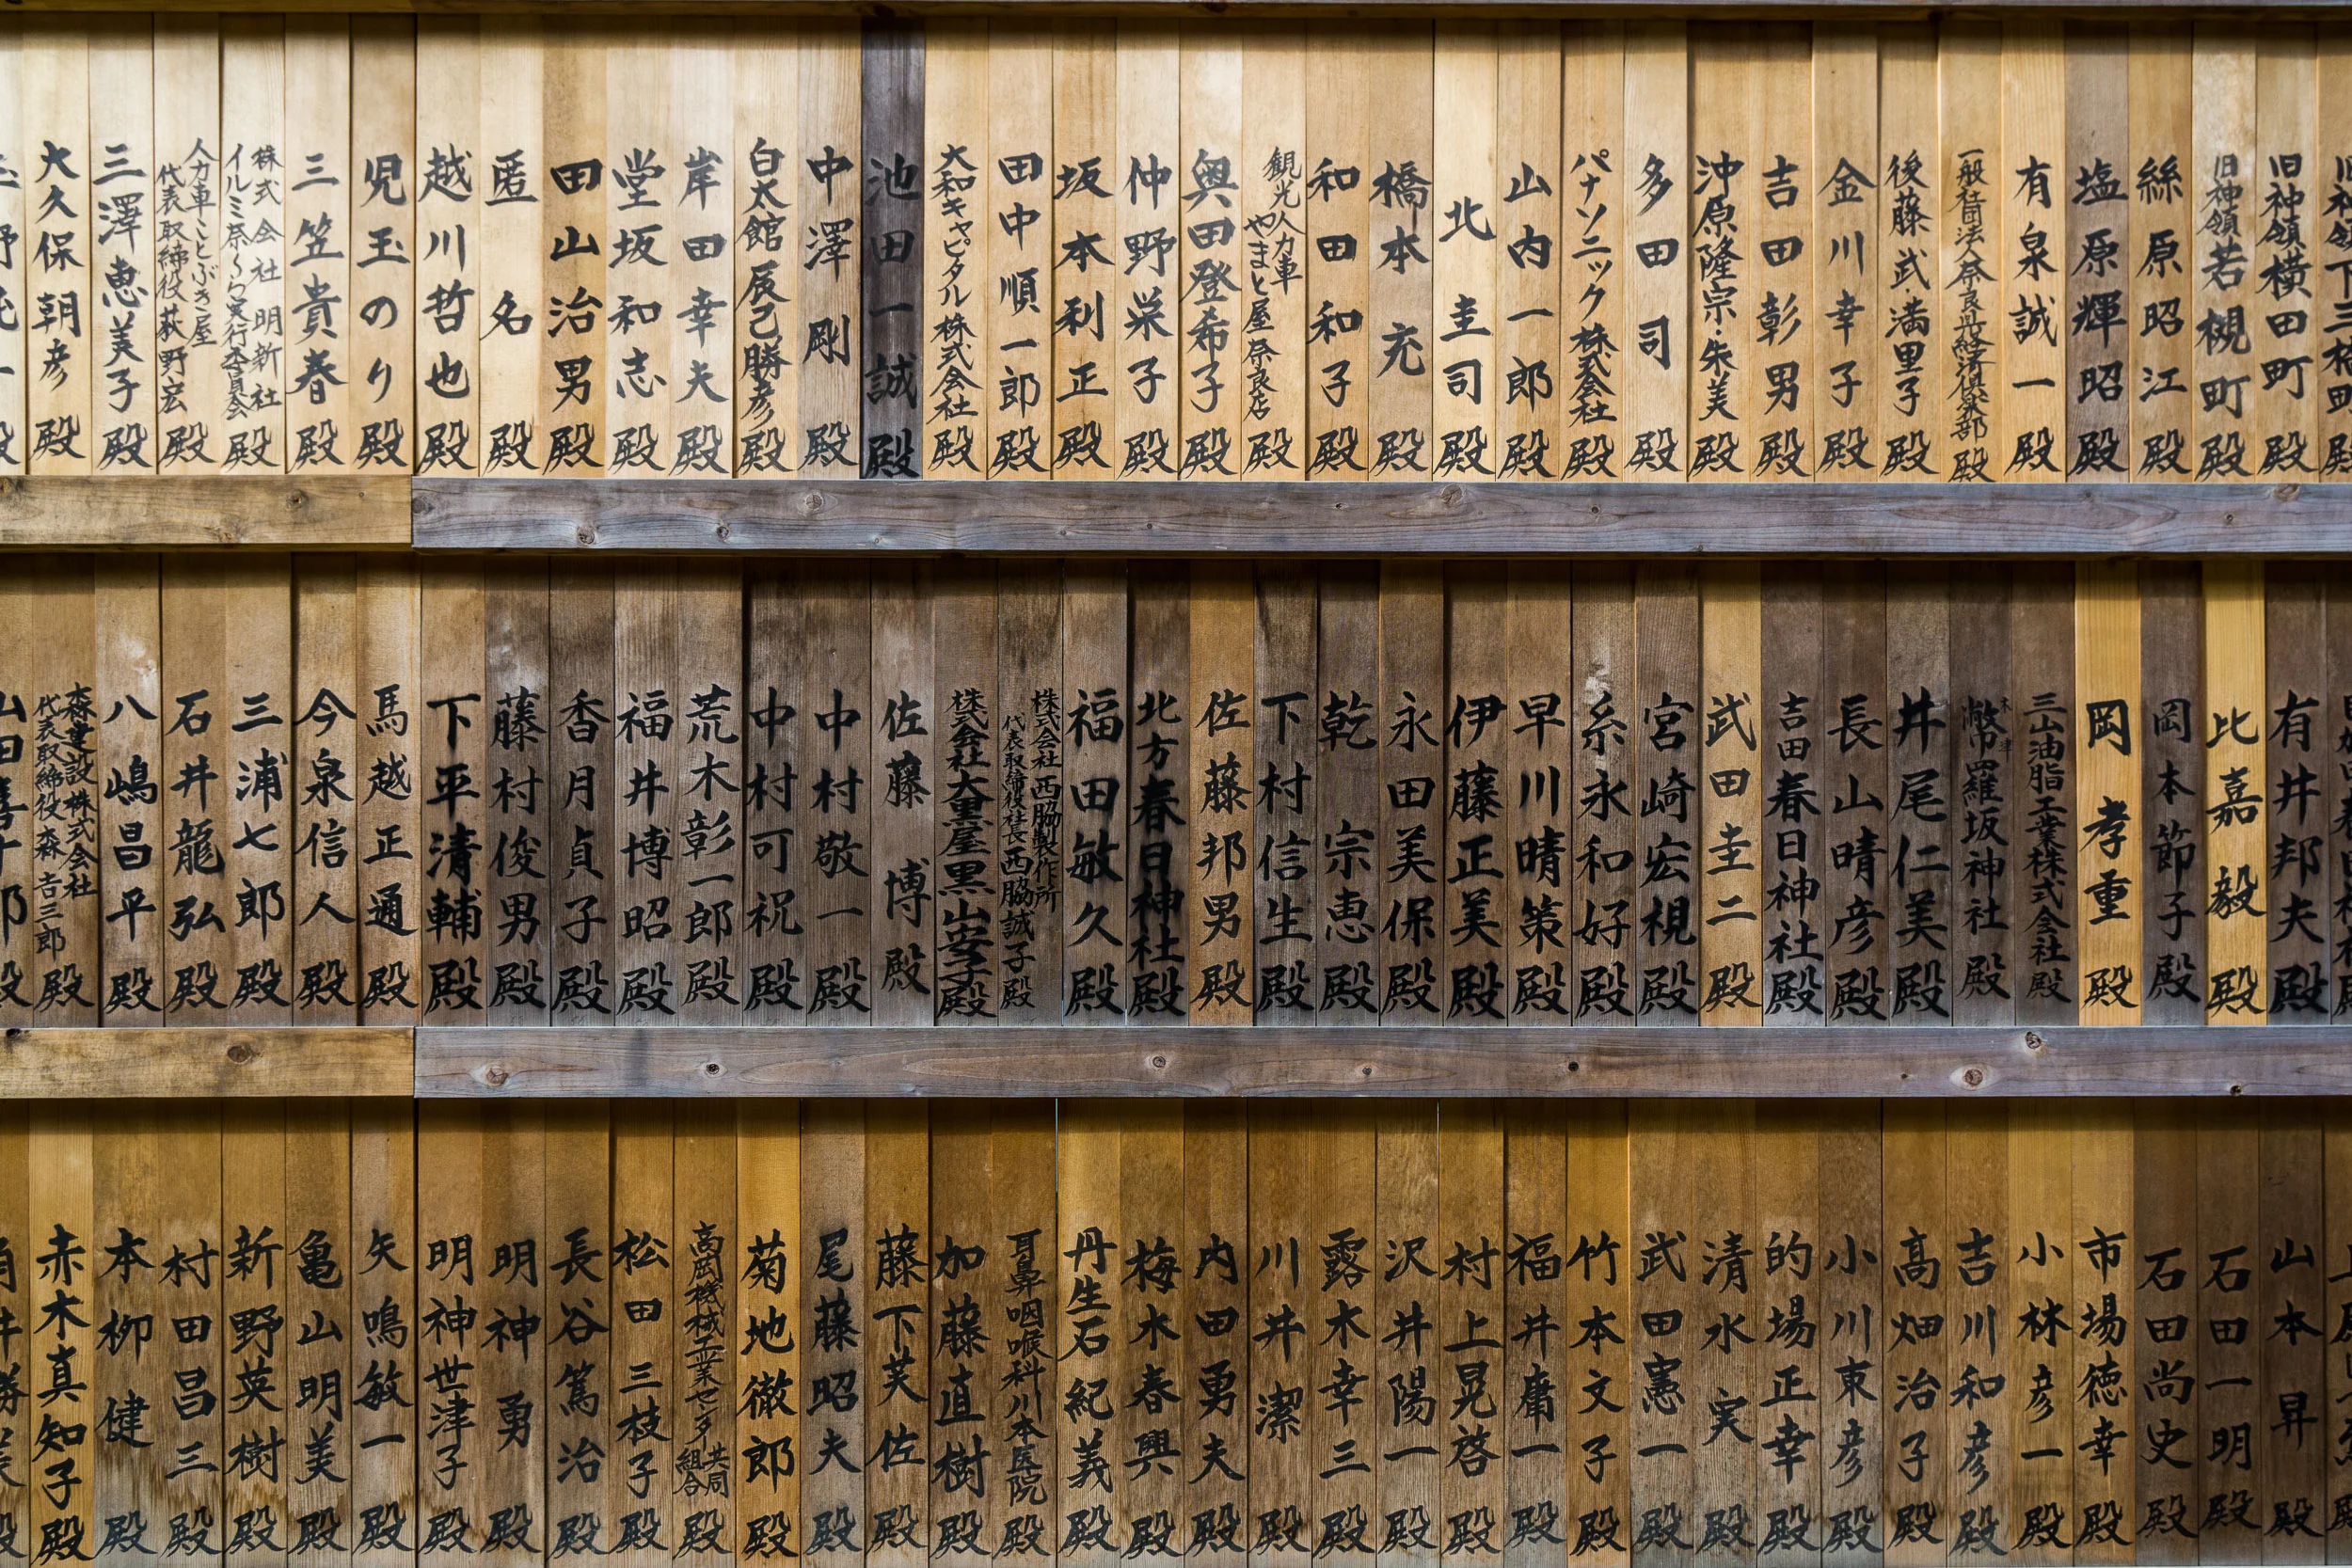 旧神領横田町殿
旧神領若槻町殿
絲原昭江殿
塩原輝昭殿
有泉誠一殿
一般社団法人奈良県経済倶楽部殿
後藤武・満里子殿
金川幸子殿
吉田彰男殿
沖原隆宗・朱美殿
多田司殿
パナソニック株式会社殿
山内一郎殿
北圭司殿
橋本充殿
和田和子殿
観光人力車
やまと屋奈良店殿
奥田登希子殿
仲野栄子殿
坂本利正殿
田中順一郎殿
大和キャピタル株式会社殿
池田一誠殿
中澤剛殿
白太館辰己勝彦殿
岸田幸夫殿
堂坂和志殿
田山治男殿
匿名殿
越川哲也殿
児玉のり殿
三笠貴春殿
株式会社明新社
イルミ奈〜ら実行委員会殿
人力車ことぶき屋
代表取締役荻野宏殿
三澤恵美子殿
大久保朝彦殿
有井邦夫殿
比嘉毅殿
岡本節子殿
岡孝重殿
三山油脂工業株式会社殿
木津
幣羅坂神社殿
井尾仁美殿
長山晴彦殿
吉田春日神社殿
武田圭二殿
宮崎宏視殿
糸永和好殿
早川晴策殿
伊藤正美殿
永田美保殿
乾宗恵殿
下村信生殿
佐藤邦男殿
北方春日神社殿
福田敏久殿
株式会社西脇製作所
代表取締役社長西脇誠子殿
株式会社大黒屋黒山安子殿
佐藤博殿
中村敬一殿
中村可祝殿
荒木彰一郎殿
福井博昭殿
香月貞子殿
藤村俊男殿
下平清輔殿
馬越正通殿
今泉信人殿
三浦七郎殿
石井龍弘殿
八嶋昌平殿
森建設株式会社
代表取締役森吉三郎殿
山本昇殿
石田一明殿
石田尚史殿
市場徳幸殿
小林彦一殿
吉川和彦殿
高畑治子殿
小川東彦殿
的場正幸殿
清水実殿
武田憲一殿
竹本文子殿
福井庸一殿
村上晃啓殿
沢井陽一殿
露木幸三殿
川井潔殿
内田勇夫殿
梅木春興殿
丹生石紀義殿
耳鼻咽喉科川本医院殿
加藤直樹殿
藤下芙佐殿
尾藤昭夫殿
菊地徹郎殿
高岡機械工業センター共同組合殿
松田三枝子殿
長谷篤治殿
明神勇殿
明神世津子殿
矢鳴敏一殿
亀山明美殿
新野英樹殿
村田昌三殿
本柳健殿
赤木真知子殿